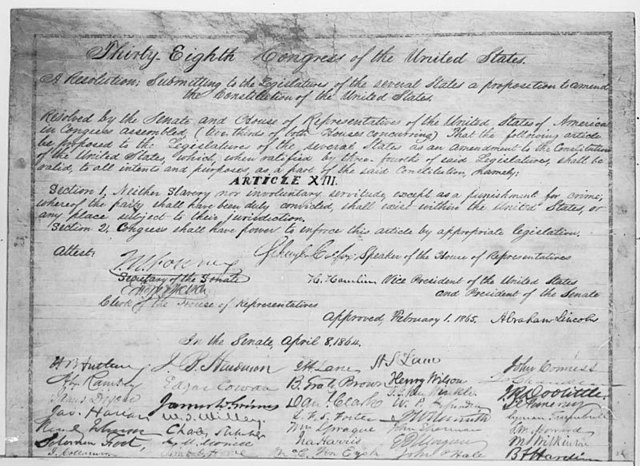 Thirty-Eighth Congress of the United States.
A Resolution; Submitting to the Legislatures of the several States a proposition to amend
the Constitution of the United States.
Resolved by the Senate and House of Representatives of the United States of America
in Congress assembled, (two thirds of both Houses concurring) That the following article
be proposed to the Legislatures of the several States as an amendment to the Constitution
of the United States, which, when ratified by three-fourth of said Legislatures, shall be
valid, to all intents and purposes, as a part of the said Constitution, namely;
ARTICLE XIII.
Section 1, Neither Slavery nor involuntary servitude, except as a punishment for crime,
whereof the party shall have been duly convicted, shall exist within the United States, or
any place subject to their jurisdiction.
Section 2, Congress shall have power to enforce this article by appropriate legislation.
Attest; Schuyler Colfax Speaker of the House of Representatives
J. W. Forney
Secretary of the Senate H. Hamlin Vice President of the United States
and President of the Senate
Clerk of the House of Representatives
Approved, February 1. 1865. Abraham Lincoln
In the Senate, April 8, 1864.
J. B. Henderson H S Lane John Conness
Edgar Cowan B. Gratz Brown Henry Wilson
James W. Grimes Dan l Clark J R Doolittle
Jas. Harlan Lyman Trumbull
Wm Sprague John Sherman
Solomon Foot Ira Harris E D Morgan M S Wilkinson
John P Hale